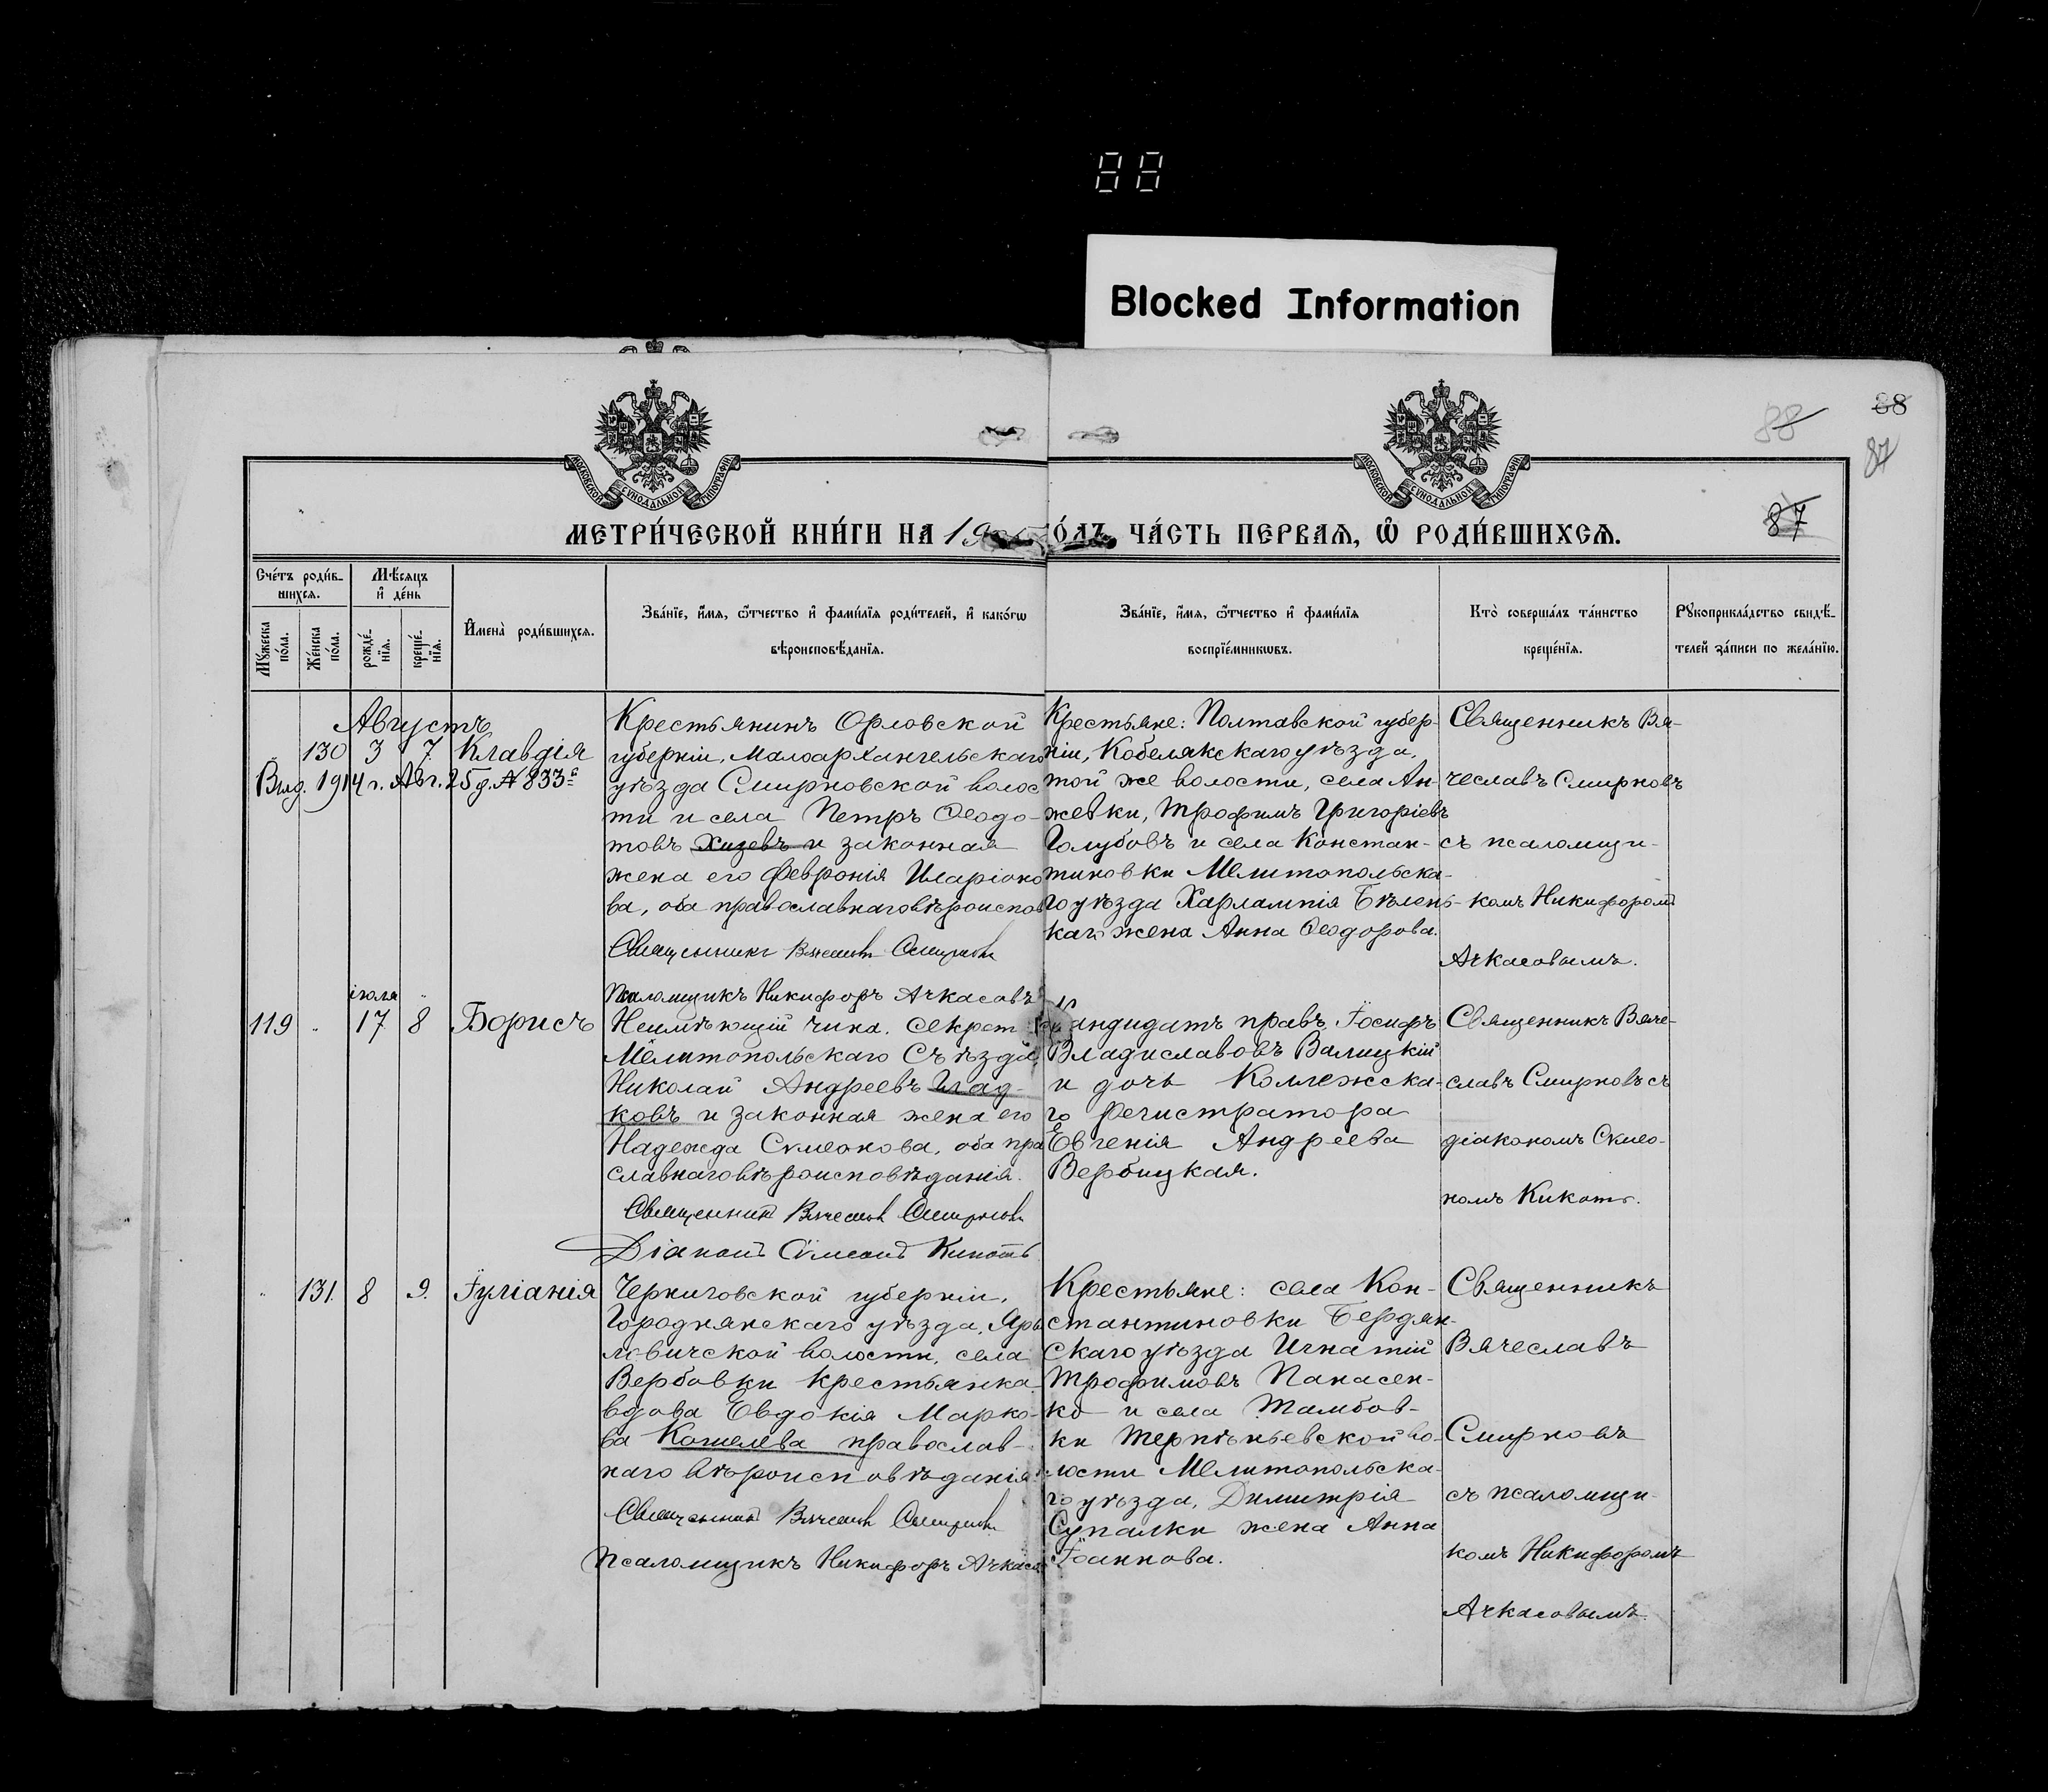 88
Blocked Information
88
88
87
87
МОСКОВСКОЙ СѴНОДАЛЬНОЙ ТИПОГРАФІИ
МОСКОВСКОЙ СѴНОДАЛЬНОЙ ТИПОГРАФІИ
МЕТРИ́ЧЕСКОЙ КНИ́ГИ НА 19
ЧА́СТЬ ПЕРВАЯ, Ѡ҆ РОДИ́ВШИХСѦ.
Сче́тъ роди́в-
шихсѧ.
Мѣ́сѧцъ
и҆ де́нь
Мꙋ́жеска по́ла.
Же́нска по́ла.
рожде́-
нїѧ.
креще́-
нїѧ.
И҆мена̀ роди́вшихсѧ.
Зва́нїе, и҆́мѧ, ѻ҆́тчество и҆ фами́лїѧ роди́телей, и҆ како́гѡ
вѣроисповѣ́данїѧ.
Зва́нїе, и҆́мѧ, ѻ҆́тчество и҆ фами́лїѧ
воспрїе́мникѡвъ.
Кто̀ соверша́лъ та́инство
креще́нїѧ.
Рꙋкоприкла́дство свидѣ́-
телей за́писи по жела́нїю.
Августъ
130 3 7 Клавдія
Выд. 1914 г. Авг. 25 д. № 833
Крестьянинъ Орловской
губерніи, Малоархангельскаго
уѣзда Смирновской волос
ти и села Петръ Ѳеодо-
товъ Хизевъ и законная
жена его Февронія Иларіоно
ва, оба православнаго вѣроиспов
Священникъ Вячеславъ Смирновъ
Псаломщикъ Никифоръ Ачкасовъ
Крестьяне: Полтавской губер-
ніи, Кобелякскаго уѣзда,
той же волости, села Ан-
жевки, Трофимъ Григоріевъ
Голубовъ и села Констан-
тиновки Мелитопольска-
го уѣзда Харлампія Бѣлень-
каго жена Анна Ѳеодорова.
Священникъ Вя-
чеславъ Смирновъ
съ псаломщи-
комъ Никифоромъ
Ачкасовымъ.
іюля
119 " 17 8 Борисъ
Неимѣющій чина, секрет
Мелитопольскаго Съѣзда,
Николай Андреевъ Глад-
ковъ и законная жена его
Надежда Симеонова, оба пра
славнаго вѣроисповѣданія.
Священникъ Вячеславъ Смирновъ
Діаконъ Сѵмеонъ Кикоть
Кандидатъ правъ Іосифъ
Владиславовъ Валицкій
и дочь Коллежска-
го регистратора
Евгенія Андреева
Вербицкая.
Священникъ Вяче-
славъ Смирновъ съ
діакономъ Симео-
номъ Кикоть.
" 131. 8 9. Іуліанія
Черниговской губерніи,
Городнянскаго уѣзда, Яры
ловичской волости, села
Вербовки крестьянка
вдова Евдокія Марко-
ва Кошелева православ-
наго вѣроисповѣданія
Священникъ Вячеславъ Смирновъ
Псаломщикъ Никифоръ Ачкасов
Крестьяне: села Кон-
стантиновки Бердян-
скаго уѣзда Игнатій
Трофимовъ Панасен-
ко и села Тамбов-
ки Терпѣньевской во-
лости Мелитопольска-
го уѣзда, Димитрія
Супалки жена Анна
Іоаннова.
Священникъ
Вячеславъ
Смирновъ
съ псаломщи-
комъ Никифоромъ
Ачкасовымъ